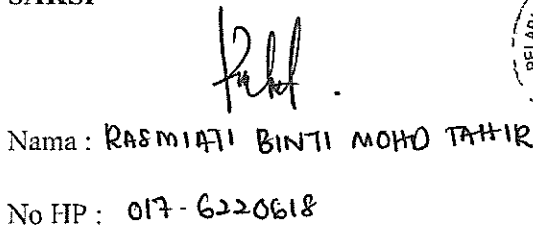 SAKSI
Nama : RASMIATI BINTI MOHD TAHIR
No HP : 017 - 6220618